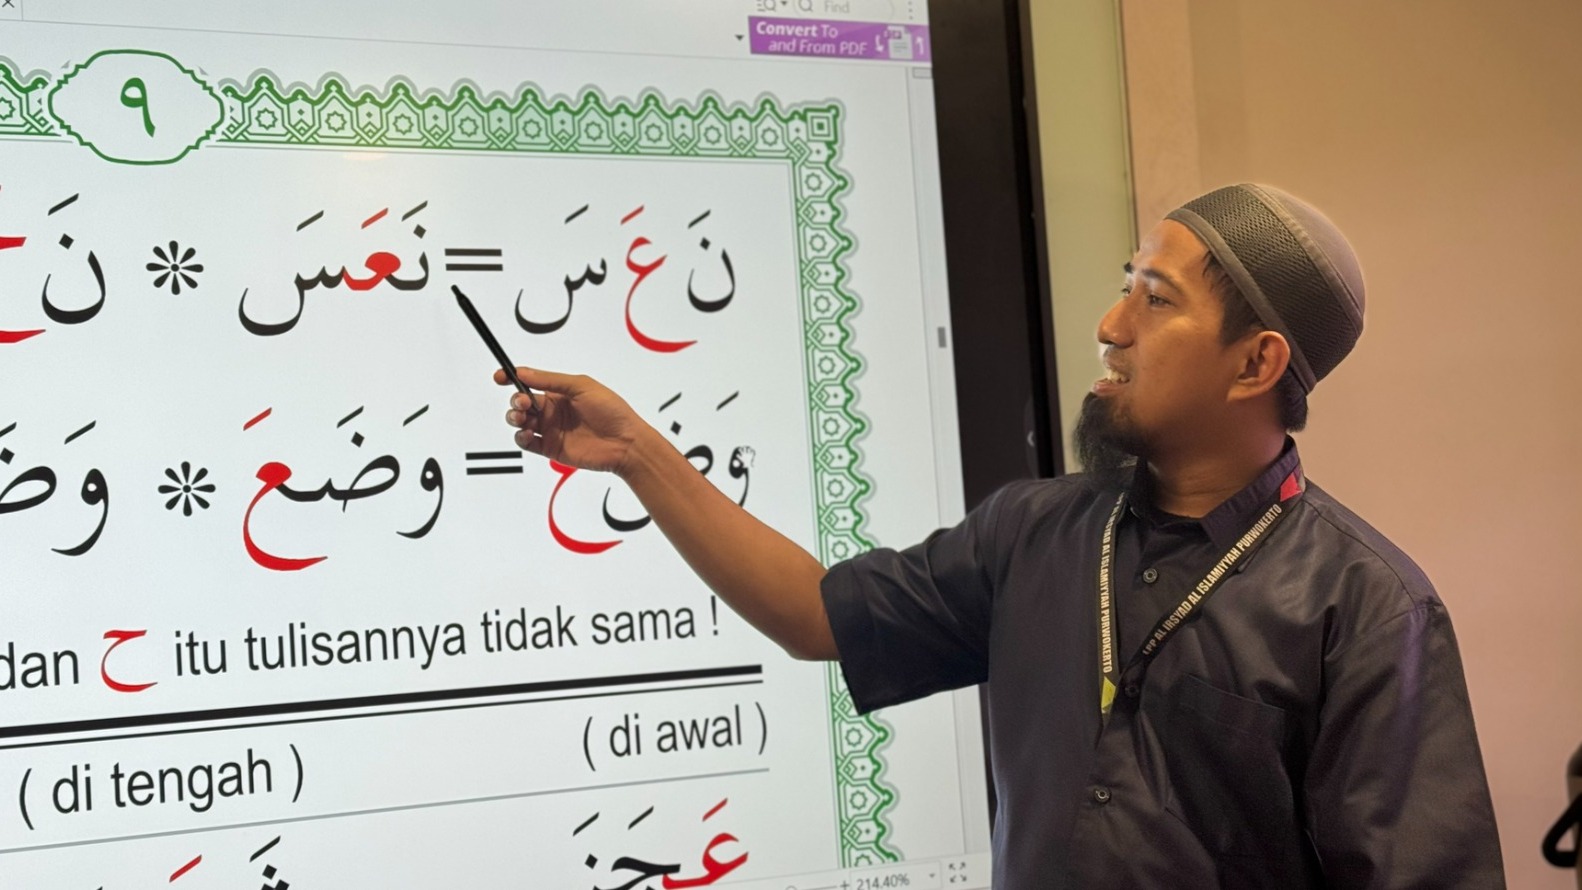 Find
Convert To
and From PDF
٩
نَ عَ سَ = نَعَسَ * نَ
وَضَعَ * وَ
dan ح itu tulisannya tidak sama !
( di awal )
( di tengah )
214.40%
LPP AL IRSYAD AL ISLAMIYYAH PURWOKERTO
AL ISLAMIYYAH PURWOKERTO